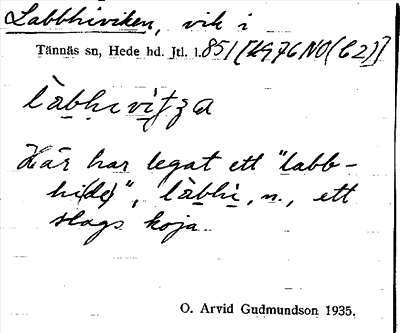 Labbhiviken, vik i
Tännäs sn, Hede hd. Jtl. 1.851 [Hg 76 NO (C2)]
Här har legat ett "labb-
hi(de)", làbhì, n., ett
slags koja
O. Arvid Gudmundson 1935.